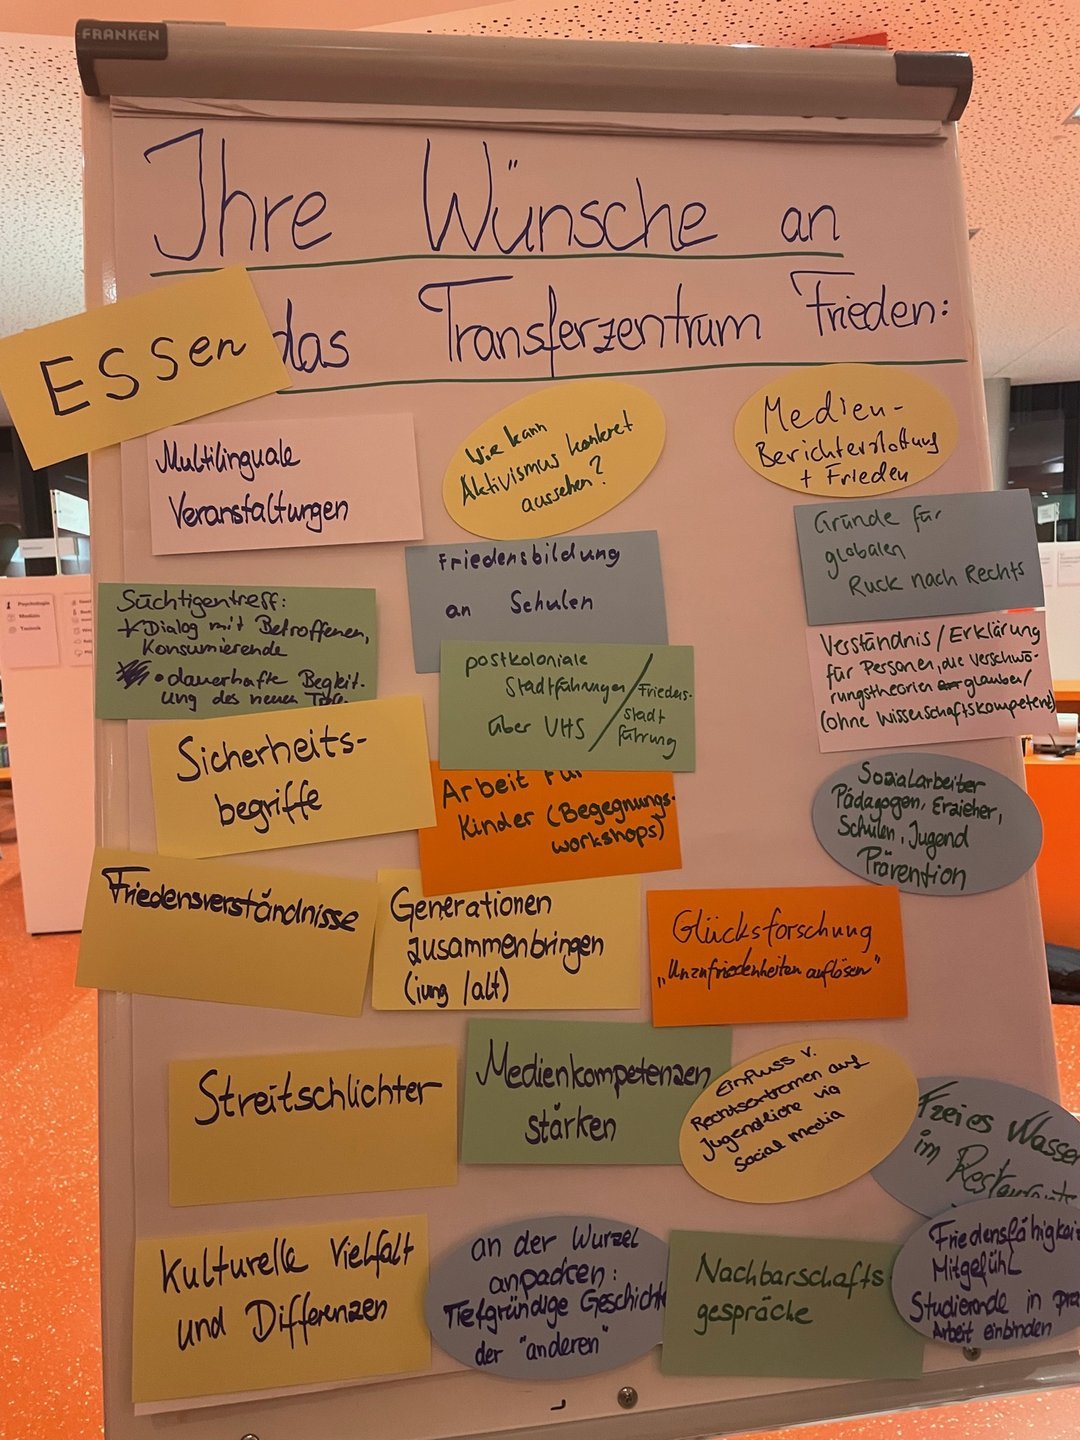 FRANKEN
Ihre Wünsche an
das Transferzentrum Frieden:
ESSen
Multilinguale
Veranstaltungen
Wie kann
Aktivismus konkret
aussehen?
Medien-
Berichterstattung
+ Frieden
Friedensbildung
an Schulen
Gründe für
globalen
Ruck nach Rechts
Süchtigentreff:
Dialog mit Betroffenen,
Konsumierende
• dauerhafte Begleit-
ung des neuen
postkoloniale
Stadtführungen
über VHS
/ Friedens-
stadt
führung
Verständnis / Erklärung
für Personen, die Verschwö-
rungstheorien glauben/
(ohne Wissenschaftskompetenz)
Sicherheits-
begriffe
Arbeit für
Kinder (Begegnungs-
workshops)
Sozialarbeiter
Pädagogen, Erzieher,
Schulen, Jugend
Prävention
Friedensverständnisse
Generationen
zusammenbringen
(jung /alt)
Glücksforschung
„Unzufriedenheiten auflösen"
Streitschlichter
Medienkompetenzen
stärken
Einfluss v.
Rechtsextremen auf
Jugendliche via
Social Media
Freies Wasser
im Restaurants
Kulturelle Vielfalt
und Differenzen
an der Wurzel
anpacken:
Tiefgründige Geschichte
der "anderen"
Nachbarschafts
gespräche
Friedensfähigkeit
Mitgefühl
Studierende in
Arbeit einbinden
Psychologie
Medizin
Technik